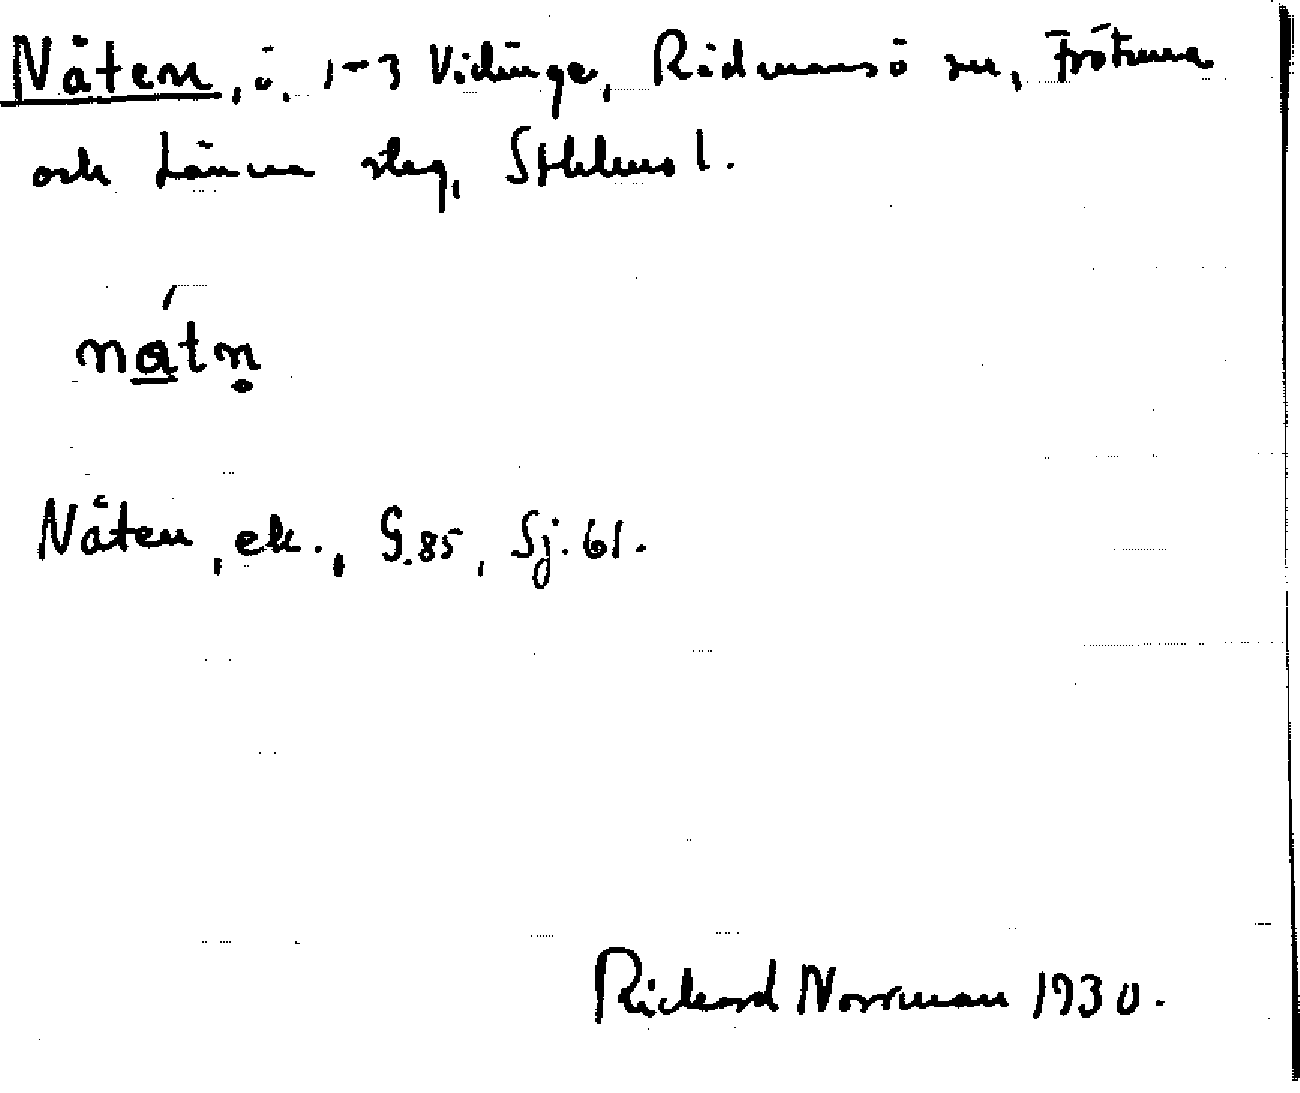 Nåten, ö, 1-3 Vidinge, Rådmansö sn, Frötuna
och Länna slag, Sthlms l.
nátn̥
Nåten, ek., G.85, Sj.61.
Rickard Norrman 1930.